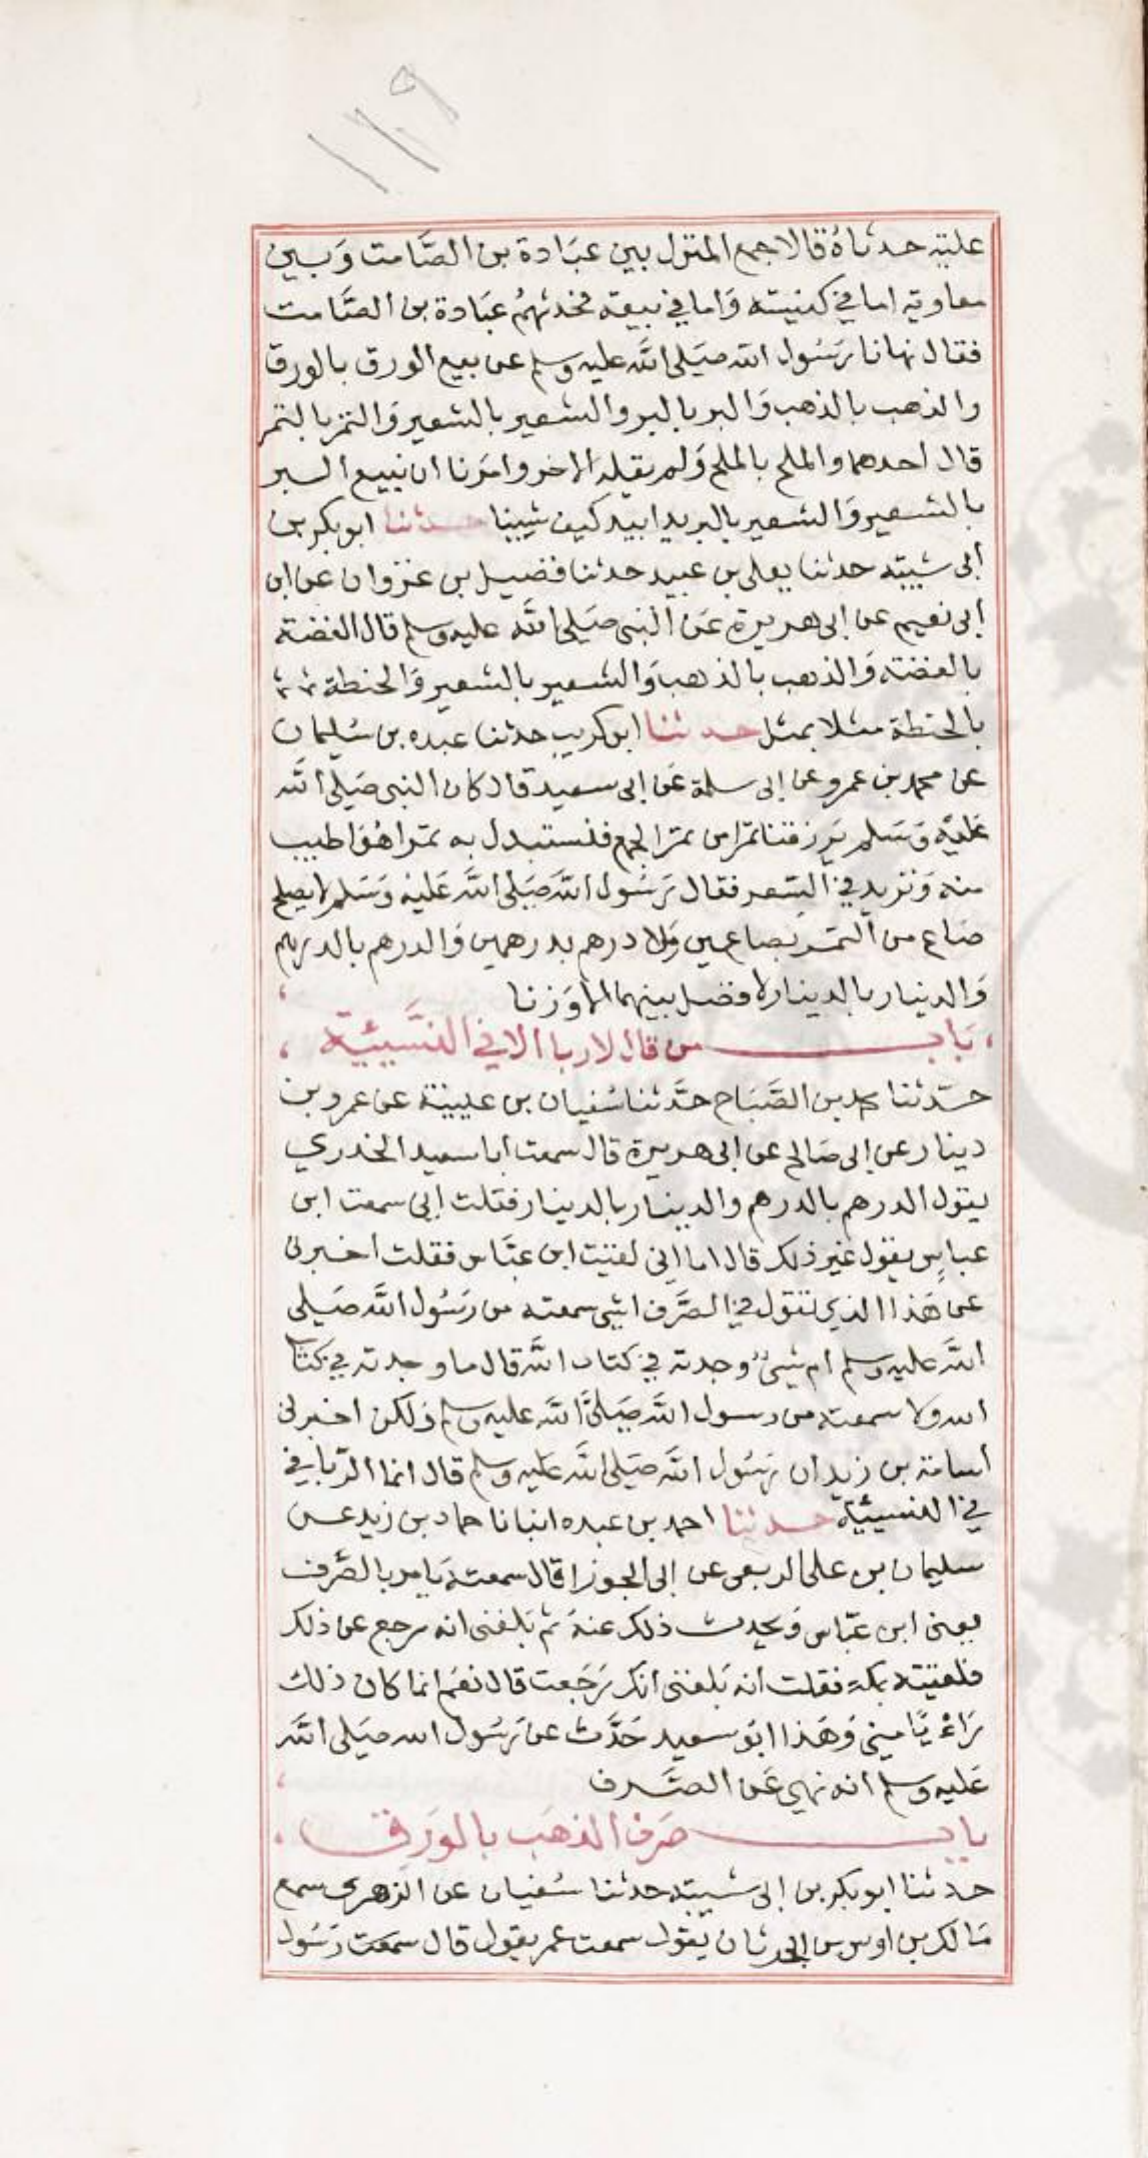 ١١٩
علية حدثاه قالا جمع المنزل بين عبَادة بن الصَّامت وَبين
معاوية اما في كنيسته وَاما في بيعة فحدثهمُ عبَادة بن الصَّامت
فقال نهانا رَسُول الله صَلى الله عليه وسلم عن بيع الورق بالورق
والذهب بالذهب وَالبر بالبر والشعير بالشعير وَالتمر بالتمر
قال احدهما والملح بالملح وَلم يقله الاخر وامرنا ان نبيع البر
بالشعير وَالشعير بالبر يدا بيد كيف شيينا حدثنا ابو بكر بن
أبى شيبته حدثنا يعلى بن عبيد حدثنا فضيل بن غزوان عن ابن
ابى نعيم عن ابى هريرة عَن النبى صَلى الله عليه وسلم قال الفضة
بالفضته وَالذهب بالذهب وَالشعير بالشعير وَالحنطة
بالحنطة مثلا بمثل حدثنا ابو كريب حدثنا عبده بن سُليمان
عن محمد بن عمرو عن ابى سلمة عَن ابى سعيد قال كان النبى صَلى الله
عَليه وَسَلم يَرزقنا تمرا من تمر الجمع فنستبدل به تمرا هُوَ اطيب
منه وَنزيد في السّعر فقال رَسُول الله صَلى الله عَليْه وَسَلم لا يصلح
صَاع من التمر بصاعين وَلا درهم بدرهمين وَالدرهم بالدرهم
وَالدينار بالدينار لا فضل بينهما الا وَزنا
بَاب من قال لا ربا الا في النَّسِيئية
حدّثنا محمد بن الصَّبَاح حدَّثنا سُفيان بن عيينة عن عمرو بن
دينار عن ابى صَالح عن ابى هريرة قال سمعت ابا سعيد الخدري
يقول الدرهم بالدرهم والدينار بالدينار فقلت انى سمعت ابن
عباس يقول غير ذلك قال اما انى لقيت ابن عبَّاس فقلت اخبرنى
عن هَذا الذي تقول في الصَّرف اشى سمعته من رَسُول الله صَلى
الله عليه وسلم ام شىء وجدته في كتاب الله قال ما وجدته في كتاب
الله وَلا سمعته من رسول الله صَلى الله عليه وسلم وَلكن اخبرنى
اسامة بن زيد ان رَسُول الله صَلى الله عَليه وسلم قال انما الرّبا في
في النسيئية حدثنا احمد بن عبده انبانا حماد بن زيد عن
سليمان بن على الربعى عن ابى الجوزا قال سمعته يَامر بالصَّرف
يعنى ابن عبّاس وَيحدث ذلك عنهُ ثم بَلغنى انه رجع عن ذلك
فلقيته بمكة فقلت انه بَلغنى انك رَجَعت قال نعَم انما كان ذلك
رَاءْيًا منِى وَهَذا ابَو سعيد حَدَّث عن رَسُول الله صَلى الله
عَليه وسلم انه نهى عَن الصَّرف
باب صَرف الذهَب بالورَق
حدثنا ابو بكر بن ابى شيبته حدثنا سُفيان عن الزهرى سمع
مَالك بن اوس بن الحدثان يقول سمعت عمر يقول قال سمعَت رَسُول